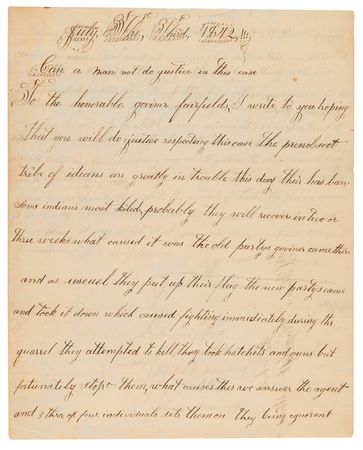 July The Third 1842
Can a man not do justice in this case
To the honorable goviner fairfields, I write to you hoping
that you will do justice respecting this case the prenobscot
tribe of idians are greatly in trouble this day their has ban
some indians most kiled, probably they will recover in two or
three weeks what caused it was the old partys goviner came ther
and as useuel they put up their flag the new partys came
and took it down which caused fighting immediately, during the
quarrel they attempted to kill they took hatchets and guns but
fortunately stopt them, what causes this we answer the agent
and thre or four individuals sits them on they being ignorant